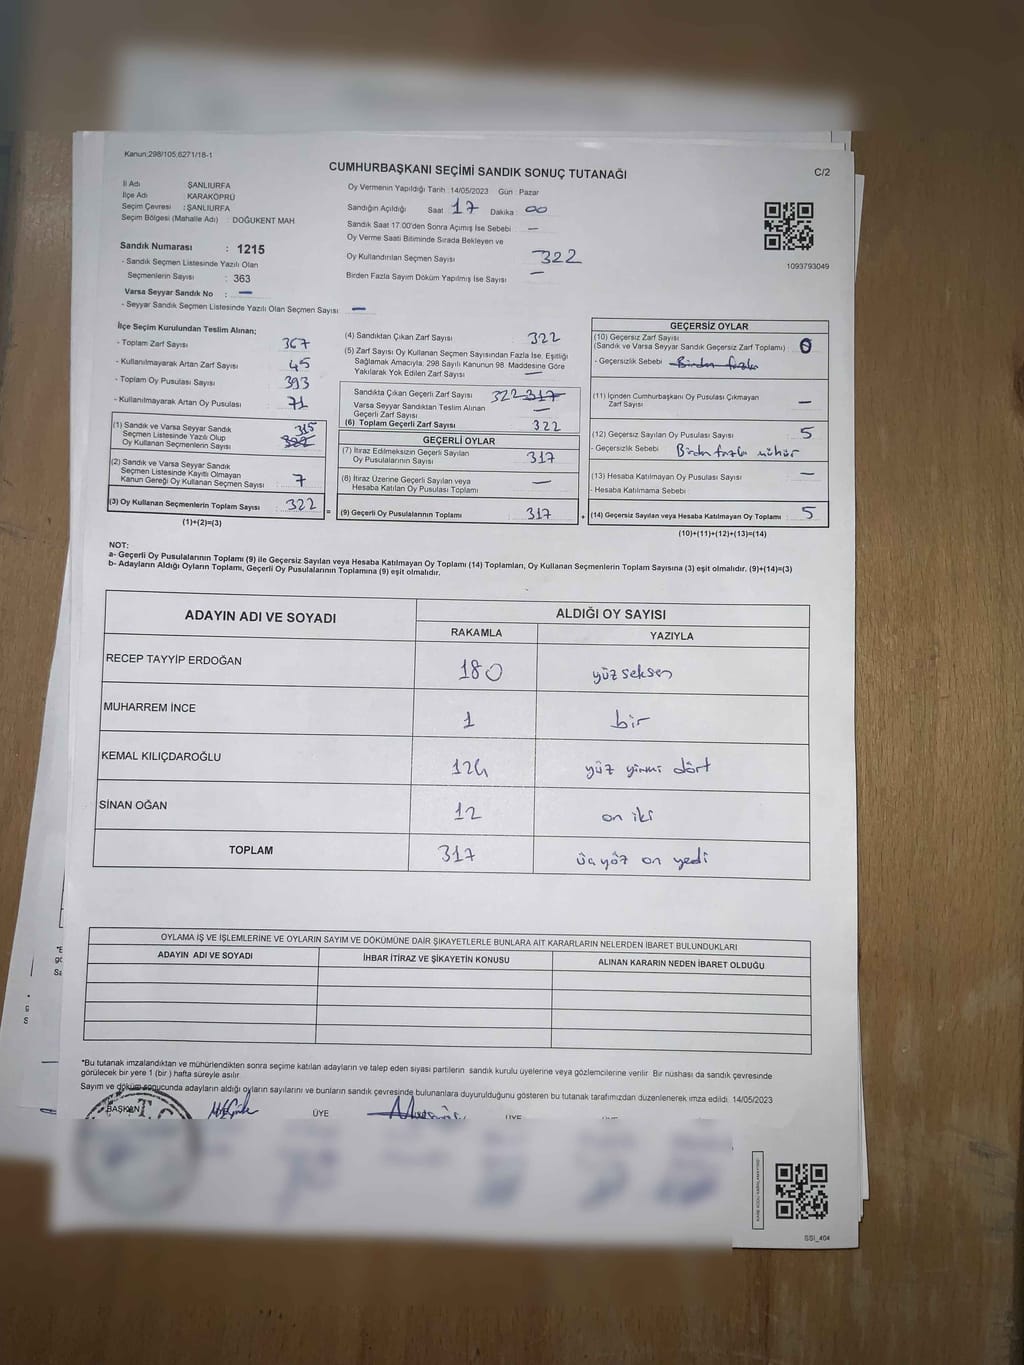 Kanun;298/105;6271/18-1
CUMHURBAŞKANI SEÇİMİ SANDIK SONUÇ TUTANAĞI
C/2
İl Adı : ŞANLIURFA
İlçe Adı : KARAKÖPRÜ
Seçim Çevresi : ŞANLIURFA
Seçim Bölgesi (Mahalle Adı) : DOĞUKENT MAH
Oy Vermenin Yapıldığı Tarih :14/05/2023 Gün : Pazar
Sandığın Açıldığı Saat 17 Dakika : 00
Sandık Saat 17:00'den Sonra Açımış İse Sebebi : —
Oy Verme Saati Bitiminde Sırada Bekleyen ve
Oy Kullandırılan Seçmen Sayısı 322
Birden Fazla Sayım Döküm Yapılmış İse Sayısı : —
1093793049
Sandık Numarası : 1215
- Sandık Seçmen Listesinde Yazılı Olan
Seçmenlerin Sayısı : 363
Varsa Seyyar Sandık No : —
- Seyyar Sandık Seçmen Listesinde Yazılı Olan Seçmen Sayısı : —
İlçe Seçim Kurulundan Teslim Alınan;
- Toplam Zarf Sayısı : 367
- Kullanılmayarak Artan Zarf Sayısı : 45
- Toplam Oy Pusulası Sayısı : 393
- Kullanılmayarak Artan Oy Pusulası : 71
(1) Sandık ve Varsa Seyyar Sandık
Seçmen Listesinde Yazılı Olup
Oy Kullanan Seçmenlerin Sayısı 315 322
(2) Sandık ve Varsa Seyyar Sandık
Seçmen Listesinde Kayıtlı Olmayan
Kanun Gereği Oy Kullanan Seçmen Sayısı : 7
(3) Oy Kullanan Seçmenlerin Toplam Sayısı : 322
(1)+(2)=(3)
(4) Sandıktan Çıkan Zarf Sayısı : 322
(5) Zarf Sayısı Oy Kullanan Seçmen Sayısından Fazla İse, Eşitliği
Sağlamak Amacıyla; 298 Sayılı Kanunun 98. Maddesine Göre
Yakılarak Yok Edilen Zarf Sayısı : —
Sandıkta Çıkan Geçerli Zarf Sayısı : 322 317
Varsa Seyyar Sandıktan Teslim Alınan
Geçerli Zarf Sayısı : —
(6) Toplam Geçerli Zarf Sayısı : 322
GEÇERLİ OYLAR
(7) İtiraz Edilmeksizin Geçerli Sayılan
Oy Pusulalarının Sayısı : 317
(8) İtiraz Üzerine Geçerli Sayılan veya
Hesaba Katılan Oy Pusulası Toplamı : —
(9) Geçerli Oy Pusulalarının Toplamı : 317
GEÇERSİZ OYLAR
(10) Geçersiz Zarf Sayısı
(Sandık ve Varsa Seyyar Sandık Geçersiz Zarf Toplamı) : 0
- Geçersizlik Sebebi : Birden fazla
(11) İçinden Cumhurbaşkanı Oy Pusulası Çıkmayan
Zarf Sayısı : —
(12) Geçersiz Sayılan Oy Pusulası Sayısı : 5
- Geçersizlik Sebebi : Birden fazla mühür
(13) Hesaba Katılmayan Oy Pusulası Sayısı : —
- Hesaba Katılmama Sebebi :
(14) Geçersiz Sayılan veya Hesaba Katılmayan Oy Toplamı : 5
(10)+(11)+(12)+(13)=(14)
NOT:
a- Geçerli Oy Pusulalarının Toplamı (9) ile Geçersiz Sayılan veya Hesaba Katılmayan Oy Toplamı (14) Toplamları, Oy Kullanan Seçmenlerin Toplam Sayısına (3) eşit olmalıdır. (9)+(14)=(3)
b- Adayların Aldığı Oyların Toplamı, Geçerli Oy Pusulalarının Toplamına (9) eşit olmalıdır.
ADAYIN ADI VE SOYADI
ALDIĞI OY SAYISI
RAKAMLA YAZIYLA
RECEP TAYYİP ERDOĞAN 180 yüz seksen
MUHARREM İNCE 1 bir
KEMAL KILIÇDAROĞLU 124 yüz yirmi dört
SİNAN OĞAN 12 on iki
TOPLAM 317 üçyüz on yedi
OYLAMA İŞ VE İŞLEMLERİNE VE OYLARIN SAYIM VE DÖKÜMÜNE DAİR ŞİKAYETLERLE BUNLARA AİT KARARLARIN NELERDEN İBARET BULUNDUKLARI
ADAYIN ADI VE SOYADI İHBAR İTİRAZ VE ŞİKAYETİN KONUSU ALINAN KARARIN NEDEN İBARET OLDUĞU
*Bu tutanak imzalandıktan ve mühürlendikten sonra seçime katılan adayların ve talep eden siyasi partilerin sandık kurulu üyelerine veya gözlemcilerine verilir. Bir nüshası da sandık çevresinde
görülecek bir yere 1 (bir ) hafta süreyle asılır.
Sayım ve döküm sonucunda adayların aldığı oyların sayılarını ve bunların sandık çevresinde bulunanlara duyurulduğunu gösteren bu tutanak tarafımızdan düzenlenerek imza edildi. 14/05/2023
BAŞKAN ÜYE ÜYE
SSI_404